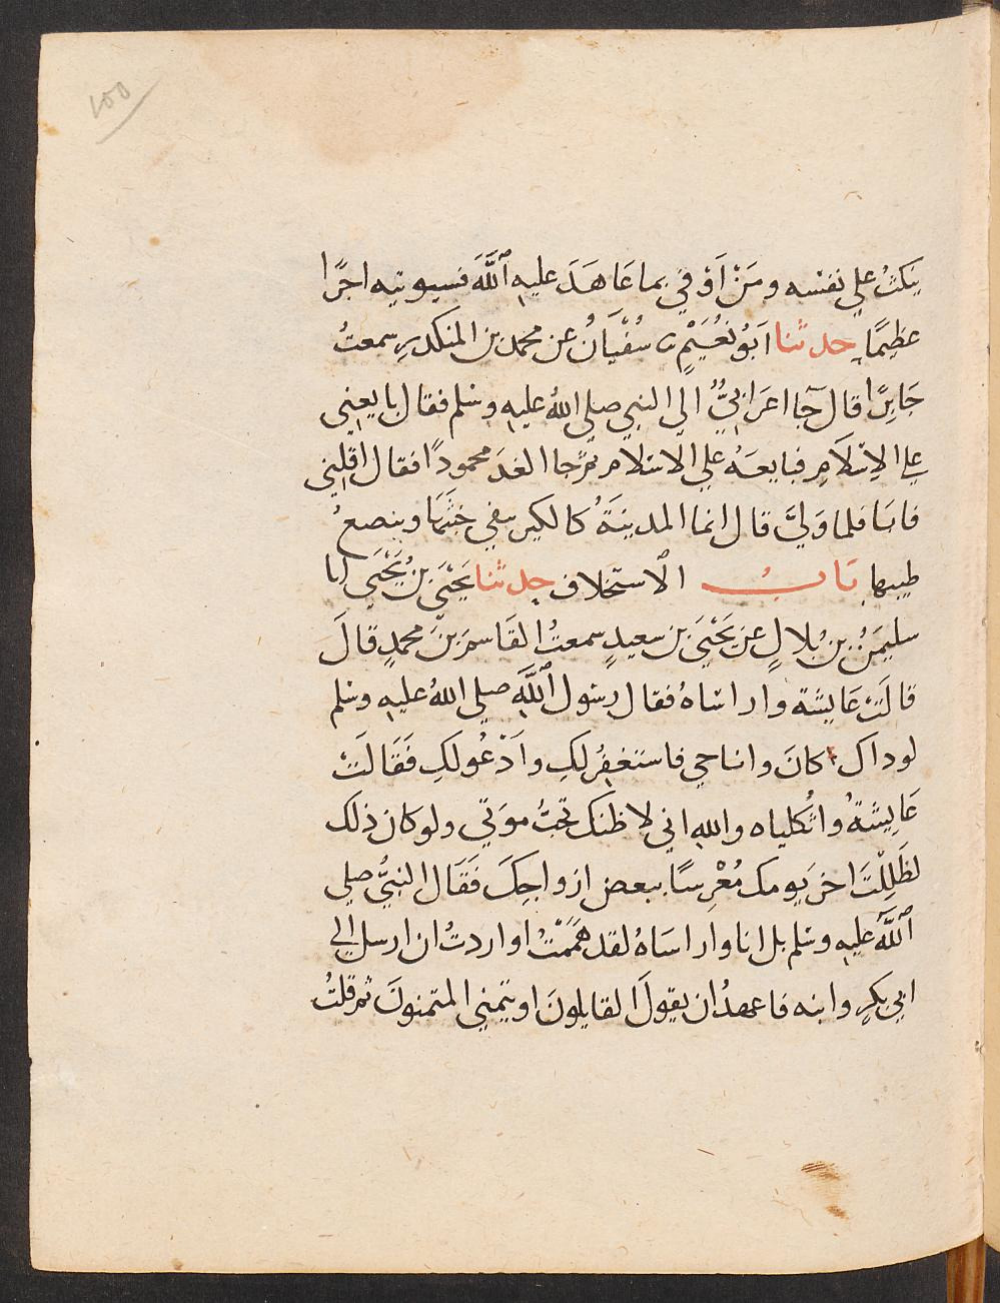 ١٥٥
ينكثُ علي نفسْه ومَنْ اَوْفي بما عَاهَدَ عليهِ ٱللَّهَ فسيوتيه اجرًا
عظِيمًا حدثنا اَبُو نُعَيْمٍ ثنا سُفْيَانُ عن محمد بن المنكدرِ سمعتُ
جَابِرًا قال جآ اعرَابيٌّ الي النبي صلي اللهُ عليهِ وسلم فقال بايعني
علي الاِسْلَامِ فبايعهُ علي الاسلام ثم جا الغدَ محمودًا فقال اقلِني
فابَا فلما وَليَّ قال انما المدينَةُ كالكيرِ ينفي خبَثَهَا وينصعُ
طيبها بَابُ الاستخلاف حدثنا يَحْيَي بنُ يَحْيَي انا
سليمَنُ بن بُلالٍ عن يَحْيَيَ بن سعيدٍ سمعتُ القَاسمَ بنَ محمدٍ قالَ
قالَتْ عَايشة وا راسَاهُ فقال رسُول ٱللَّهِ صلي اللهُ عليهِ وسلم
لو داكِ كانَ وانا حي فاستغفِرُ لكِ واَدْعُو لكِ فَقَالَتْ
عَايِشةُ واثُكلياه واللهِ اني لاظنك تحبُّ موَتي ولو كان ذلك
لظَلِلْتَ اخرَ يومك مُعْرِسًا ببعضِ ازواجِكَ فَقَال النبيُّ صلي
ٱللَّهُ عليهِ وسلم بل انا وا راسَاهُ لقد هَمَمْتُ او اردتُ ان ارسل الي
ابي بكرٍ وابنه فاعهدُ ان يقولَ القايلونَ او يتمني المتمنونَ ثم قلتُ